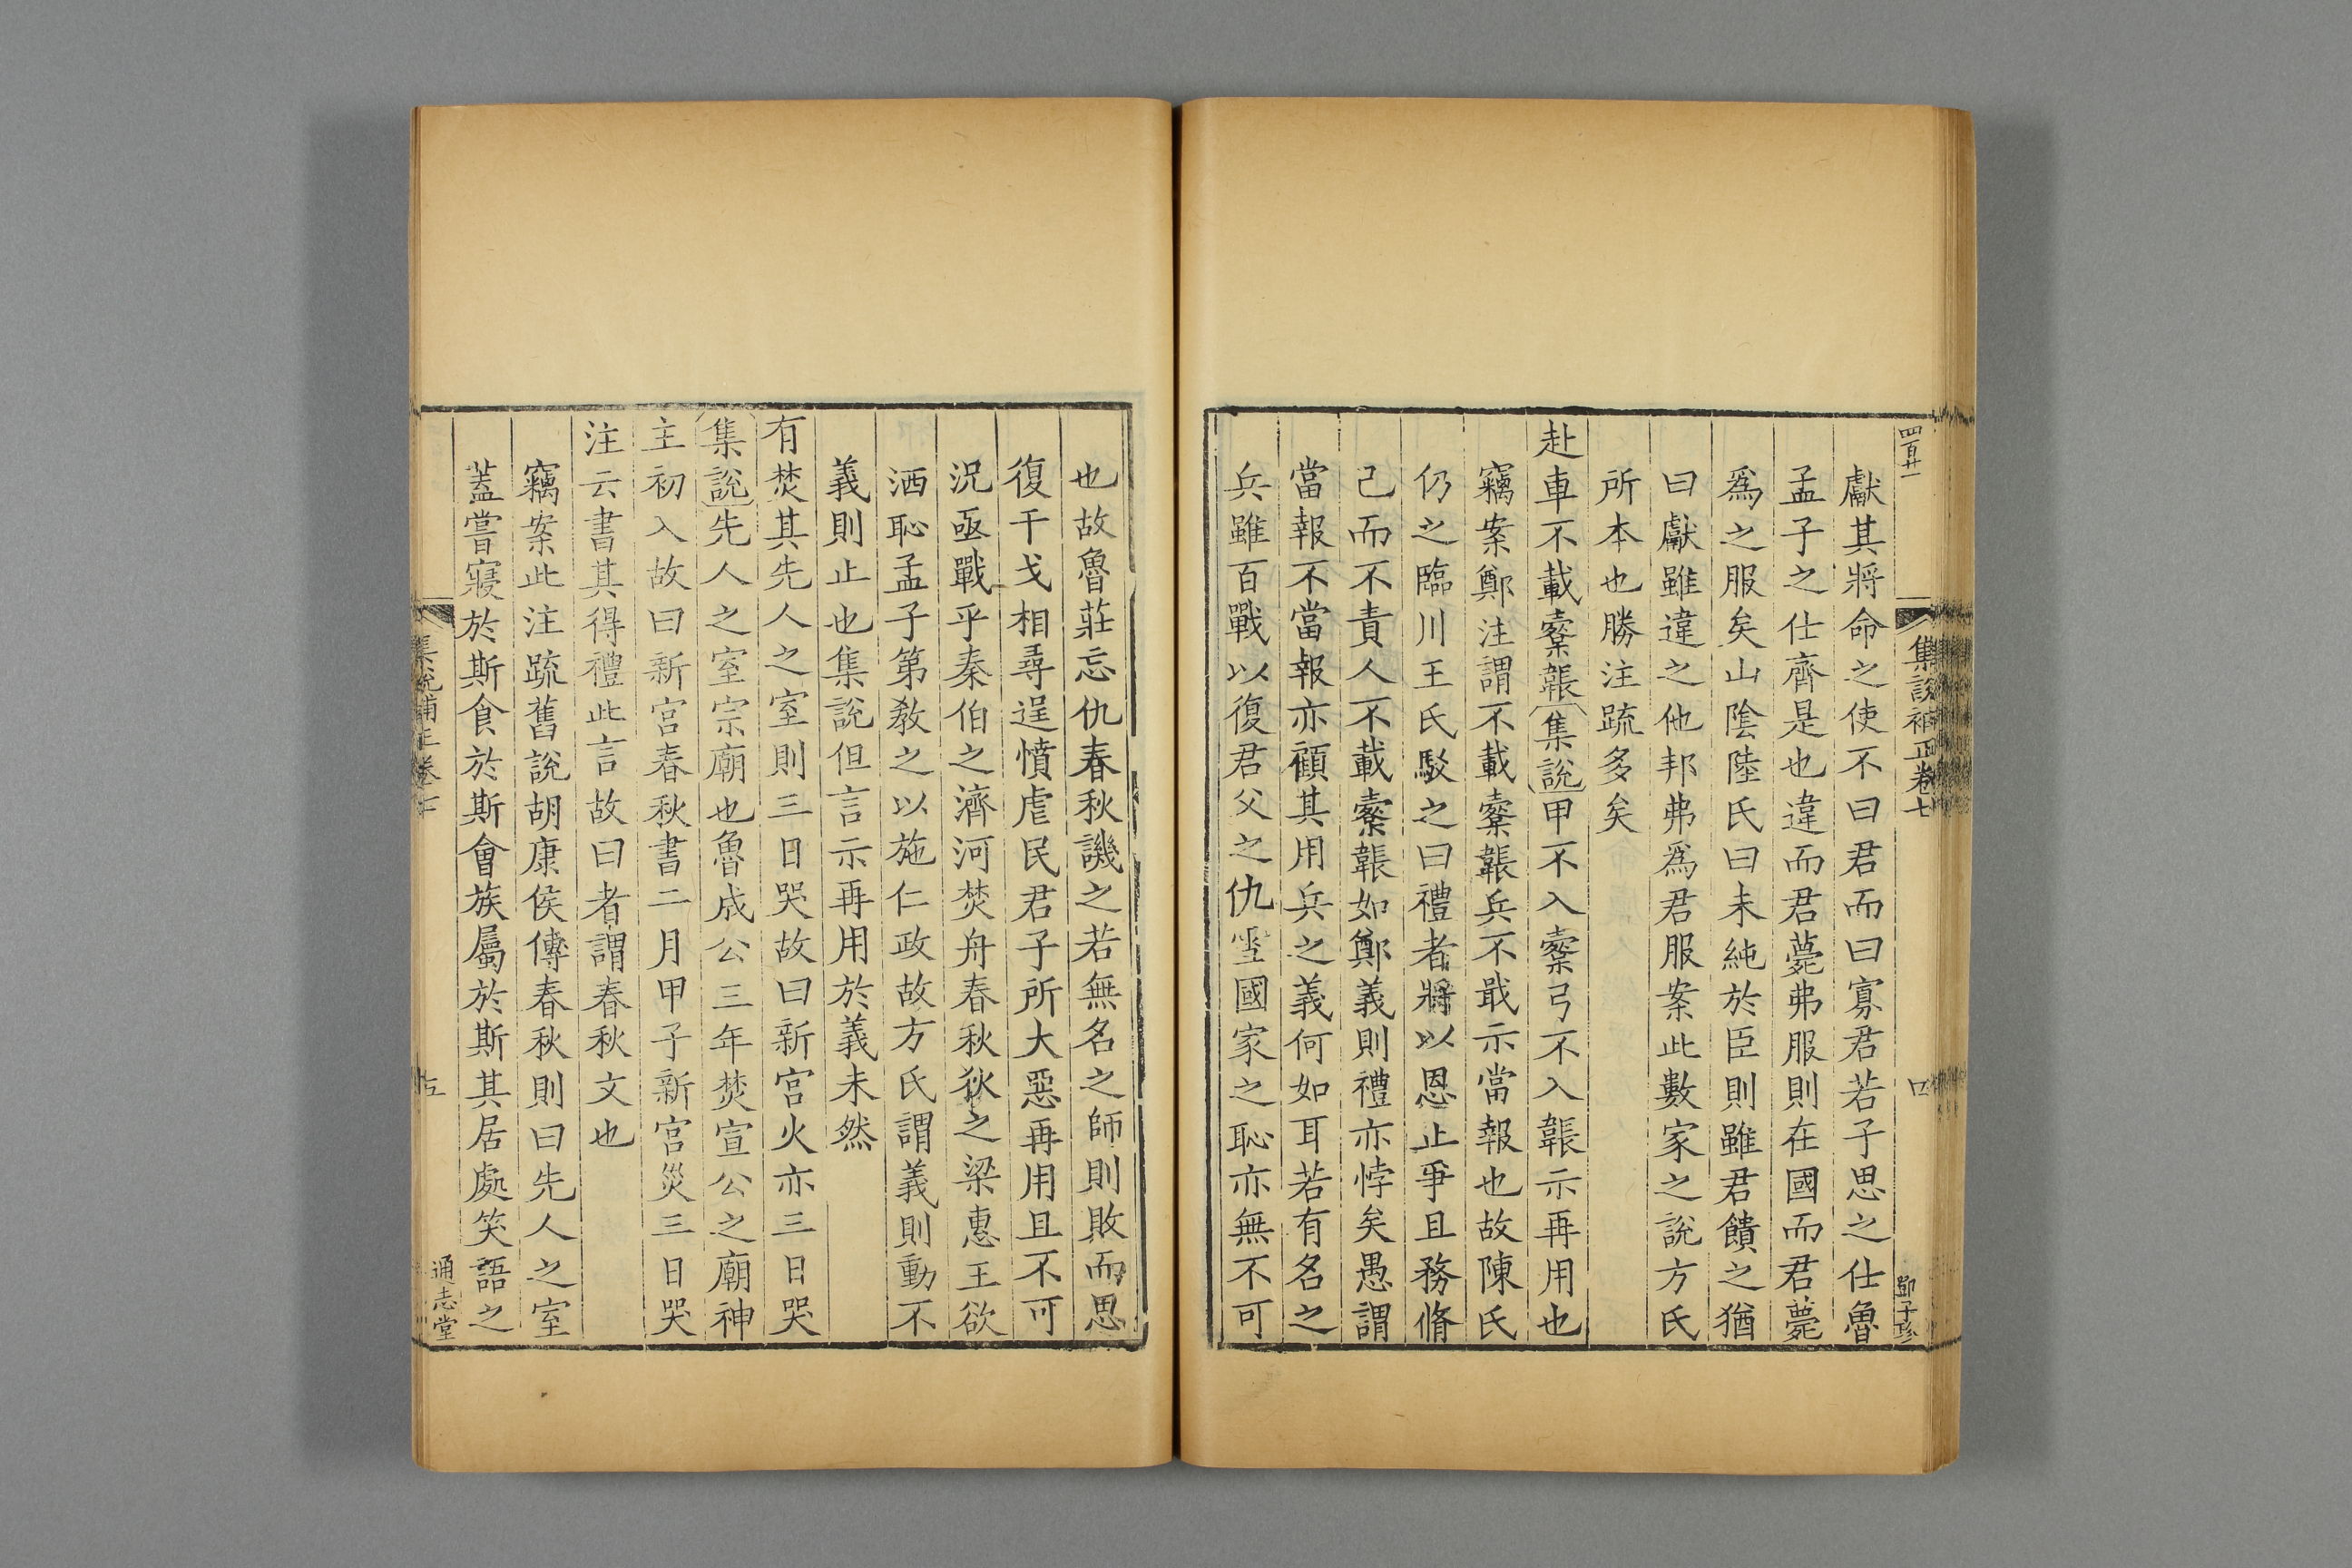 四百廿一
集説補正卷七
四
鄧子珍
獻其將命之使不曰君而曰寡君若子思之仕魯
孟子之仕齊是也違而君薨弗服則在國而君薨
爲之服矣山陰陸氏曰未純於臣則雖君饋之猶
曰獻雖違之他邦弗爲君服案此數家之說方氏
所本也勝注疏多矣
赴車不載櫜韔集說甲不入櫜弓不入韔示再用也
竊案鄭注謂不載櫜韔兵不戢示當報也故陳氏
仍之臨川王氏駁之曰禮者將以恩止爭且務脩
己而不責人不載櫜韔如鄭義則禮亦悖矣愚謂
當報不當報亦顧其用兵之義何如耳若有名之
兵雖百戰以復君父之仇雪國家之恥亦無不可
也故魯莊忘仇春秋譏之若無名之師則敗而思
復干戈相尋逞憤虐民君子所大惡再用且不可
況亟戰乎秦伯之濟河焚舟春秋狄之梁惠王欲
洒恥孟子第敎之以施仁政故方氏謂義則動不
義則止也集說但言示再用於義未然
有焚其先人之室則三日哭故曰新宮火亦三日哭
集說先人之室宗廟也魯成公三年焚宣公之廟神
主初入故曰新宮春秋書二月甲子新宮災三日哭
注云書其得禮此言故曰者謂春秋文也
竊案此注疏舊說胡康侯傳春秋則曰先人之室
蓋嘗寢於斯食於斯會族屬於斯其居處笑語之
集説補正卷七
五
通志堂